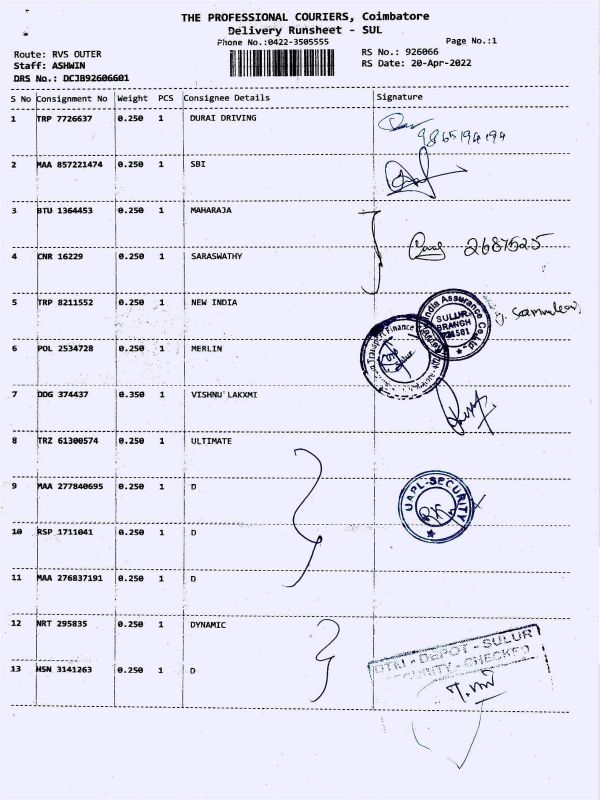 THE PROFESSIONAL COURIERS, Coimbatore
Delivery Runsheet - SUL
Phone No.:0422-3505555
Page No.:1
Route: RVS OUTER
RS No.: 926066
Staff: ASHWIN
RS Date: 20-Apr-2022
DRS No.: DCJB92606601
S No Consignment No Weight PCS Consignee Details Signature
1 TRP 7726637 0.250 1 DURAI DRIVING
9865194194
2 MAA 857221474 0.250 1 SBI
3 BTU 1364453 0.250 1 MAHARAJA
2687525
4 CNR 16229 0.250 1 SARASWATHY
5 TRP 8211552 0.250 1 NEW INDIA
India Assurance Co.
SULUR
BRANCH
6 POL 2534728 0.250 1 MERLIN
Transport Finance
7 DDG 374437 0.350 1 VISHNU LAKXMI
8 TRZ 61300574 0.250 1 ULTIMATE
9 MAA 277840695 0.250 1 D
UAPL-SECURITY
10 RSP 1711041 0.250 1 D
11 MAA 276837191 0.250 1 D
12 NRT 295835 0.250 1 DYNAMIC
DTM - DEPOT - SULUR
SECURITY - CHECKED
13 HSN 3141263 0.250 1 D